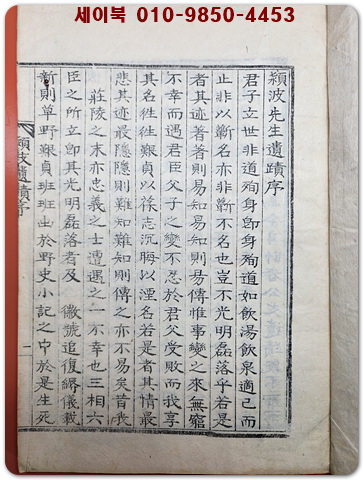 세이북 010-9850-4453
潁波先生遺蹟序
君子立世非道殉身卽身殉道如飮湯飮泉適已而
止非以勳名亦非靳不名也豈不光明磊落乎若是
者其迹著著則易知易知則易傳惟事變之來無窮
不幸而遇君臣父子之變不忍於君父受敗而我享
其名徃徃艱貞以徇志沉晦以湮名若是者其情最
悲其迹最隱隱則難知難知則傳之亦不易矣昔我
莊陵之末亦忠義之士遭遇之一不幸也三相六
臣之所立卽其光明磊落者及 徽號追復縟儀載
新則草野艱貞班班出於野史小記之中於是生死
潁波遺蹟序 一